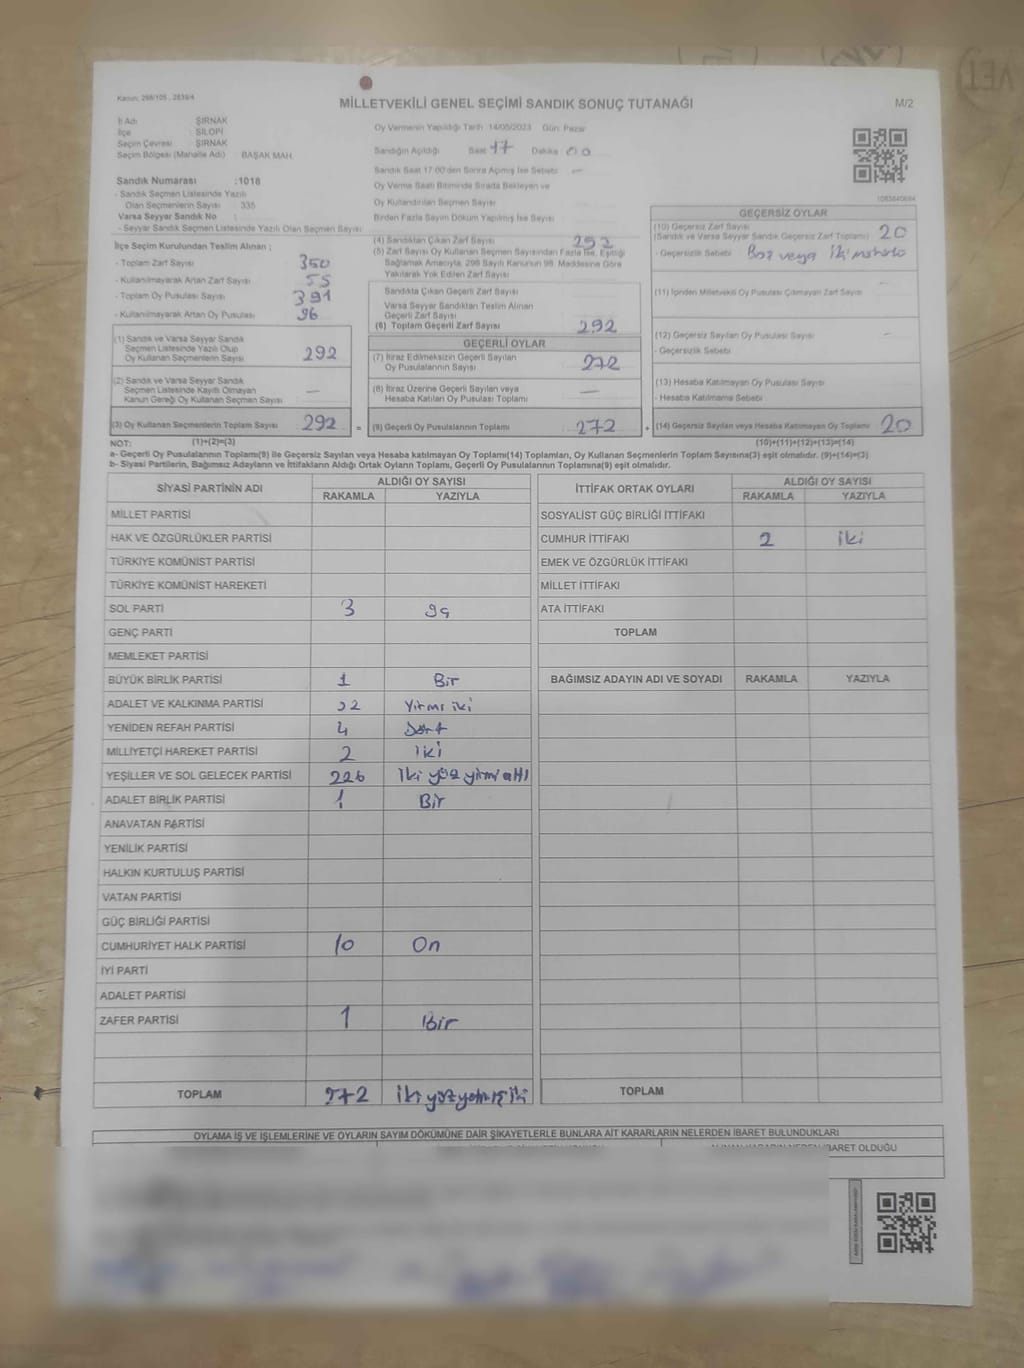 Kanun: 298/105 , 2839/4
MİLLETVEKİLİ GENEL SEÇİMİ SANDIK SONUÇ TUTANAĞI
M/2
İl Adı : ŞIRNAK
İlçe : SİLOPİ
Seçim Çevresi : ŞIRNAK
Seçim Bölgesi (Mahalle Adı) BAŞAK MAH.
Sandık Numarası :1018
- Sandık Seçmen Listesinde Yazılı
Olan Seçmenlerin Sayısı : 335
Varsa Seyyar Sandık No :
- Seyyar Sandık Seçmen Listesinde Yazılı Olan Seçmen Sayısı :
Oy Vermenin Yapıldığı Tarih :14/05/2023 Gün: Pazar
Sandığın Açıldığı Saat 17 Dakika 00
Sandık Saat 17:00'den Sonra Açılmış İse Sebebi: —
Oy Verme Saati Bitiminde Sırada Bekleyen ve
Oy Kullandırılan Seçmen Sayısı
Birden Fazla Sayım Döküm Yapılmış İse Sayısı
İlçe Seçim Kurulundan Teslim Alınan ;
- Toplam Zarf Sayısı 350
- Kullanılmayarak Artan Zarf Sayısı 55
- Toplam Oy Pusulası Sayısı 391
- Kullanılmayarak Artan Oy Pusulası 96
(1) Sandık ve Varsa Seyyar Sandık
Seçmen Listesinde Yazılı Olup
Oy Kullanan Seçmenlerin Sayısı 292
(2) Sandık ve Varsa Seyyar Sandık
Seçmen Listesinde Kayıtlı Olmayan
Kanun Gereği Oy Kullanan Seçmen Sayısı —
(3) Oy Kullanan Seçmenlerin Toplam Sayısı 292 =
(4) Sandıktan Çıkan Zarf Sayısı 292
(5) Zarf Sayısı Oy Kullanan Seçmen Sayısından Fazla İse, Eşitliği
Sağlamak Amacıyla, 298 Sayılı Kanunun 98. Maddesine Göre
Yakılarak Yok Edilen Zarf Sayısı
Sandıkta Çıkan Geçerli Zarf Sayısı
Varsa Seyyar Sandıktan Teslim Alınan
Geçerli Zarf Sayısı
(6) Toplam Geçerli Zarf Sayısı 292
GEÇERLİ OYLAR
(7) İtiraz Edilmeksizin Geçerli Sayılan
Oy Pusulalarının Sayısı 272
(8) İtiraz Üzerine Geçerli Sayılan veya
Hesaba Katılan Oy Pusulası Toplamı —
(9) Geçerli Oy Pusulalarının Toplamı 272 +
GEÇERSİZ OYLAR
(10) Geçersiz Zarf Sayısı
(Sandık ve Varsa Seyyar Sandık Geçersiz Zarf Toplamı) 20
- Geçersizlik Sebebi Boş veya
(11) İçinden Milletvekili Oy Pusulası Çıkmayan Zarf Sayısı —
(12) Geçersiz Sayılan Oy Pusulası Sayısı —
- Geçersizlik Sebebi
(13) Hesaba Katılmayan Oy Pusulası Sayısı
- Hesaba Katılmama Sebebi
(14) Geçersiz Sayılan veya Hesaba Katılmayan Oy Toplamı 20
NOT: (1)+(2)=(3) (10)+(11)+(12)+(13)=(14)
a- Geçerli Oy Pusulalarının Toplamı(9) ile Geçersiz Sayılan veya Hesaba katılmayan Oy Toplamı(14) Toplamları, Oy Kullanan Seçmenlerin Toplam Sayısına(3) eşit olmalıdır. (9)+(14)=(3)
b- Siyasi Partilerin, Bağımsız Adayların ve İttifakların Aldığı Ortak Oyların Toplamı, Geçerli Oy Pusulalarının Toplamına(9) eşit olmalıdır.
SİYASİ PARTİNİN ADI ALDIĞI OY SAYISI
RAKAMLA YAZIYLA
MİLLET PARTİSİ
HAK VE ÖZGÜRLÜKLER PARTİSİ
TÜRKİYE KOMÜNİST PARTİSİ
TÜRKİYE KOMÜNİST HAREKETİ
SOL PARTİ 3
GENÇ PARTİ
MEMLEKET PARTİSİ
BÜYÜK BİRLİK PARTİSİ 1 Bir
ADALET VE KALKINMA PARTİSİ 22 Yirmi iki
YENİDEN REFAH PARTİSİ 4 Dört
MİLLİYETÇİ HAREKET PARTİSİ 2 iki
YEŞİLLER VE SOL GELECEK PARTİSİ 226 İki yüz yirmi altı
ADALET BİRLİK PARTİSİ 1 Bir
ANAVATAN PARTİSİ
YENİLİK PARTİSİ
HALKIN KURTULUŞ PARTİSİ
VATAN PARTİSİ
GÜÇ BİRLİĞİ PARTİSİ
CUMHURİYET HALK PARTİSİ 10 On
İYİ PARTİ
ADALET PARTİSİ
ZAFER PARTİSİ 1 Bir
TOPLAM 272 iki yüz yetmiş iki
İTTİFAK ORTAK OYLARI ALDIĞI OY SAYISI
RAKAMLA YAZIYLA
SOSYALİST GÜÇ BİRLİĞİ İTTİFAKI
CUMHUR İTTİFAKI 2 iki
EMEK VE ÖZGÜRLÜK İTTİFAKI
MİLLET İTTİFAKI
ATA İTTİFAKI
TOPLAM
BAĞIMSIZ ADAYIN ADI VE SOYADI RAKAMLA YAZIYLA
TOPLAM
OYLAMA İŞ VE İŞLEMLERİNE VE OYLARIN SAYIM DÖKÜMÜNE DAİR ŞİKAYETLERLE BUNLARA AİT KARARLARIN NELERDEN İBARET BULUNDUKLARI
İBARET OLDUĞU